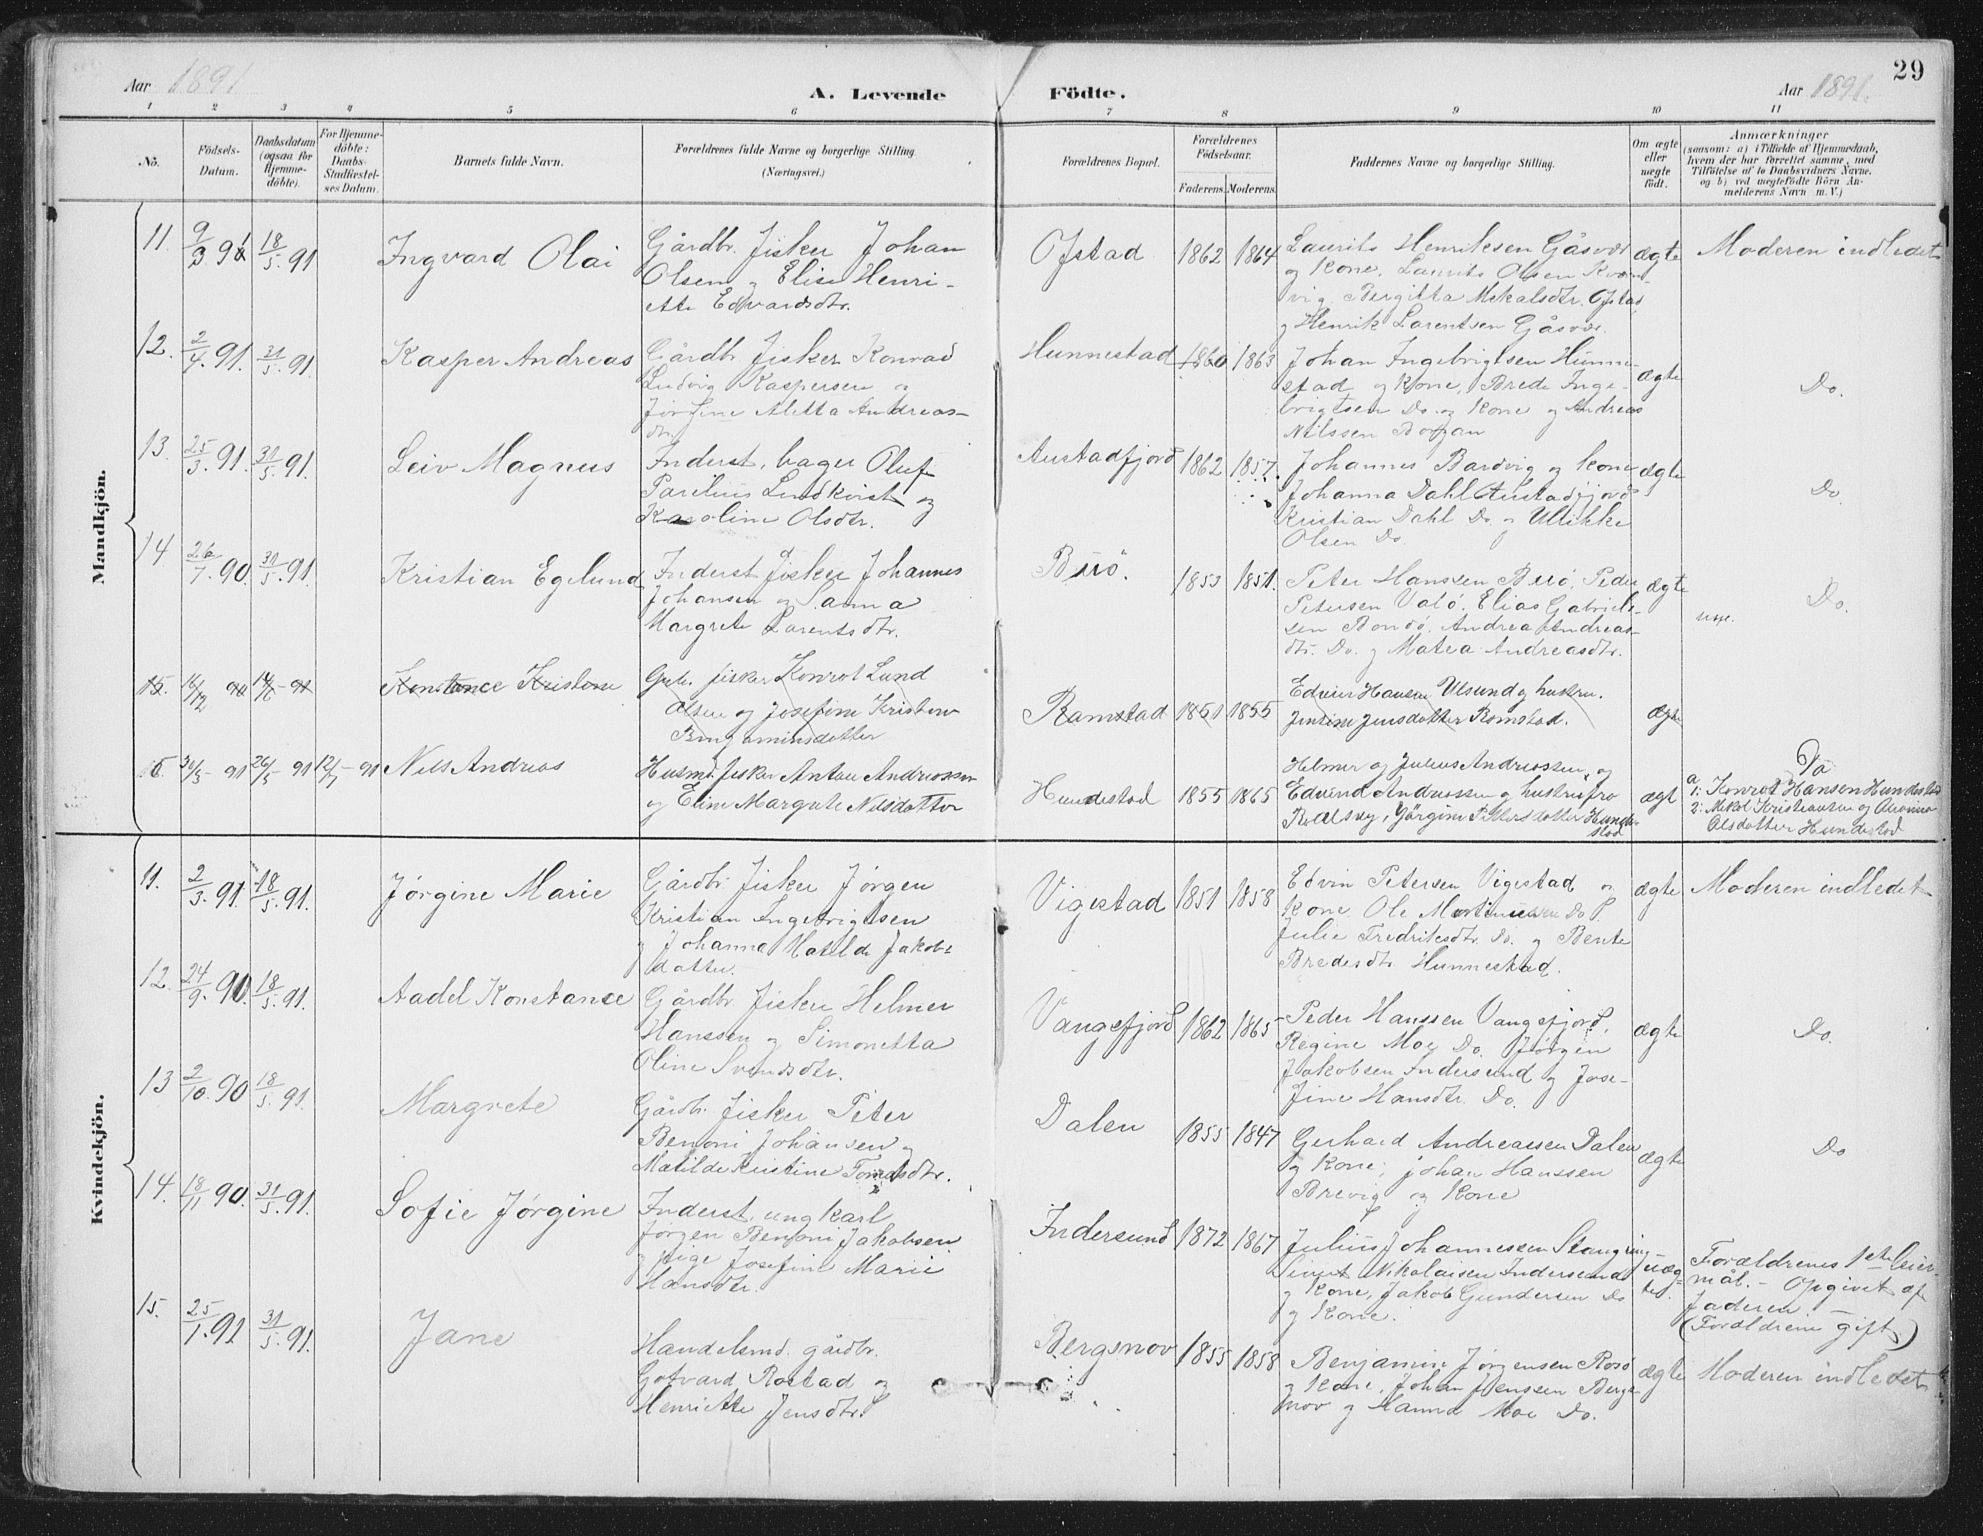 Aar 1891
A. Levende Födte.
Aar 1891.
29
1 2 3 4 5 6 7 8 9 10 11
No. Födsels-Datum. Daabsdatum (ogsaa for Hjemmedöbte). For Hjemmedöbte: Daabs-Stadfæstelses Datum. Barnets fulde Navn. Forældrenes fulde Navne og borgerlige Stilling. (Næringsvei.) Forældrenes Bopæl. Forældrenes Födselsaar. Faderens. Moderens. Faddernes Navne og borgerlige Stilling. Om ægte eller uægte födt. Anmærkninger (saasom: a) i Tilfælde af Hjemmedaab, hvem der har forrettet samme, med Tilföielse af to Daabsvidners Navne. og b) ved uegtefödte Börn Anmelderens Navn m. V.)
Mandkjön.
11. 9/3 91 18/5. 91 Ingvard Olai Gårdbr. fisker Johan Ofstad 1862 1864 Laurits Henriksen Gåsvær ægte Moderen indledet
Olsen og Elise Henri- og Kone, Laurits Olsen
ette Edvardsdtr. vig. Bergitta Mikalsdtr. Ofstad
og Henrik Larentsen Gåsvær.
12. 2/4. 91. 31/5. 91. Kasper Andreas Gårdbr. fisker Konrad Hunnestad 1860 1863 Johan Ingebrigtsen Hunne- ægte Do.
Ludvig Kaspersen og stad og Kone, Brede Inge-
Aletta Andreas- brigtsen Do. og Kone og Andreas
dtr. Nilssen
13. 25/3. 91. 31/5. 91. Leiv Magnus Inderst, bager Oluf Austadfjord 1862 1857. Johannes Bardvig og Kone ægte Do
Parelius Lindkvist og Johanna Dahl Austadfjord
Karoline Olsdtr. Kristian Dahl Do. og Ullikke
Olsen Do.
14 26/7. 90. 31/5. 91. Kristian Egelund Inderst fisker Johannes Burö. 1853 1851. Peter Hanssen Burö, Peder ægte Do.
Johansen og Sanna Petersen Valö. Elias Gabriel-
Margrete Larentsdtr. sen Bondö. Andrea Andreas-
dtr. Do. og Matea Andreasdtr.
15. 16/12 90 Konstance Kristine fisker Konrot Lund Ramstad 1851 1855 Edvin Hansen Ulsund og hustru. ægte
Olsen og Josefine Kristine Jensine Jensdatter Ramstad.
Benjaminsdatter
15. 30/3 - 91 26/5 - 91 12/7 - 91 Nils Andreas Husmd. fisker Anton Andreassen Hundestad 1855 1865 Helmer og Julius Andreassen, og ægte
og Eline Margrete Nilsdatter Edvind Andreassen og hustru fra
Jörgine Pettersdatter Hunde-
stad
a. 1: Konrot Hansen Hundestad
2: Mikal Kristiansen og
Olsdatter Hundestad
Kvindekjön.
11. 2/3. 91. 18/5. 91. Jørgine Marie Gårdbr. fisker Jørgen Vigestad 1851 1858 Edvin Petersen Vigestad og ægte Moderen indledet
Kristian Ingebrigtsen Kone. Ole Martinussen Do.
og Johanna Matilde Jakobs- Julie Fredriksdtr. Do. og Bente
datter. Bredesdtr. Hunnestad.
12. 24/9. 90. 18/5. 91. Aadel Konstance Gårdbr. fisker Helmer Vangefjord 1862 1865 Peder Hanssen Vangefjord, ægte Do.
Hanssen og Simonetta Regine Moe Do. Jørgen
Oline Svendsdtr. Jakobsen Indersund og Jose-
fine Hansdtr. Do.
13 2/10. 90 18/5. 91. Margrete Gårdbr. fisker Peter Dalen 1855 1847 Gerhard Andreassen Dalen ægte Do
Benoni Johansen og og Kone, Johan Hanssen
Matilde Kristine Tomasdtr. Brevig og Kone
14. 18/11 90. 31/5. 91. Sofie Jørgine Inderst, ungkarl Indersund 1872 1867 Julius Johannessen uæg- Forældrenes 1ste leier-
Jørgen Benoni Jakobsen Nikolaisen Indersund te. mål. - Opgivet af
og pige Josefine Marie og Kone, Jakob Gundersen Do faderen. -
Hansdtr. og Kone. (Forældrene gift)
15. 25/1. 91 31/5. 91. Jane Handelsmd. gårdbr. Bergsnov 1855 1858 Benjamin Jørgensen Rosö ægte Moderen indledet
Gotvard Rostad og og Kone, Johan Jenssen Bergs-
Henriette Jensdtr. nov og Hanna Moe Do.